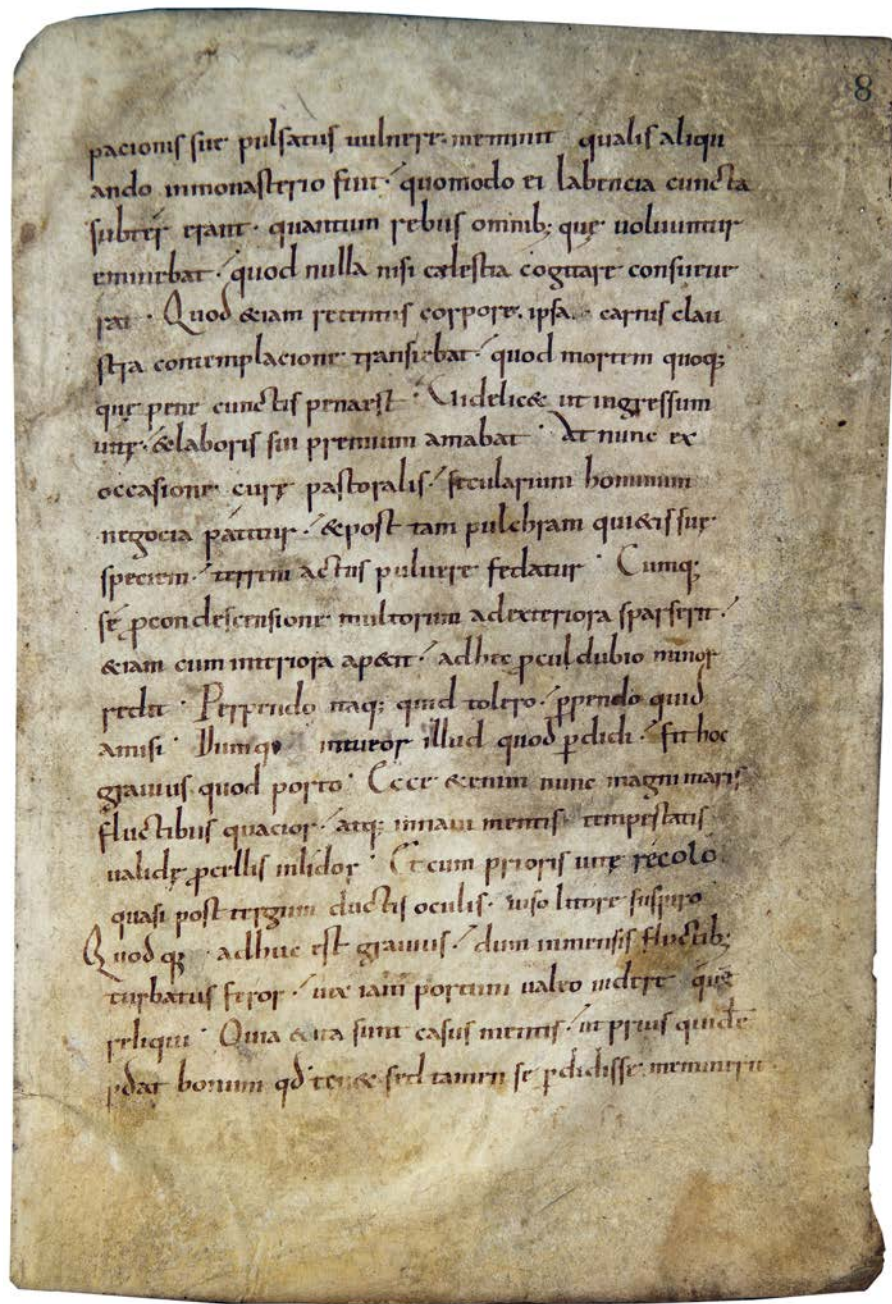 8
pacionis sue pulsatus uulnere. meminit qualis aliqu
ando inmonasterio fuit. quomodo ei labencia cuncta
subter erant. quantum rebus omnib; quę uoluuntur
eminebat. quod nulla nisi cęlestia cogitare consueue
rat. Quod &iam retentus corpore. ipsa. carnis clau
stra contemplacione transiebat. quod mortem quoq;
quę pene cunctis penaest. Uidelic& ut ingressum
uitę. &laboris sui premium amabat. At nunc ex
occasione curę pastoralis. secularium hominum
negocia patitur. &post tam pulchram qui&is suę
speciem. terreni actus puluere fedatur. Cumq;
se ꝓcondescensione multorum adexteriora sparserit.
&iam cum interiora ap&it. adhec ꝓculdubio minor
redit. Perpendo itaq; quid tolero. ꝑpendo quid
amisi. Dumq; intueor illud quod ꝑdidi. fit hoc
grauius quod porto. Ecce &enim nunc magni maris
fluctibus quacior. atq; innaui mentis tempestatis
ualidę ꝓcellis inlidor. Et cum prioris uitę recolo.
quasi post tergum ductis oculis. uiso litore suspiro
Quod q; adhuc est grauius. dum inmensis fluctib;
turbatus feror. uix iam portum ualeo uidere quę
reliqui. Quia &ita sunt casus mentis. ut prius quidē
ꝑdat bonum qđ ten& sed tamen se ꝑdidisse meminerit